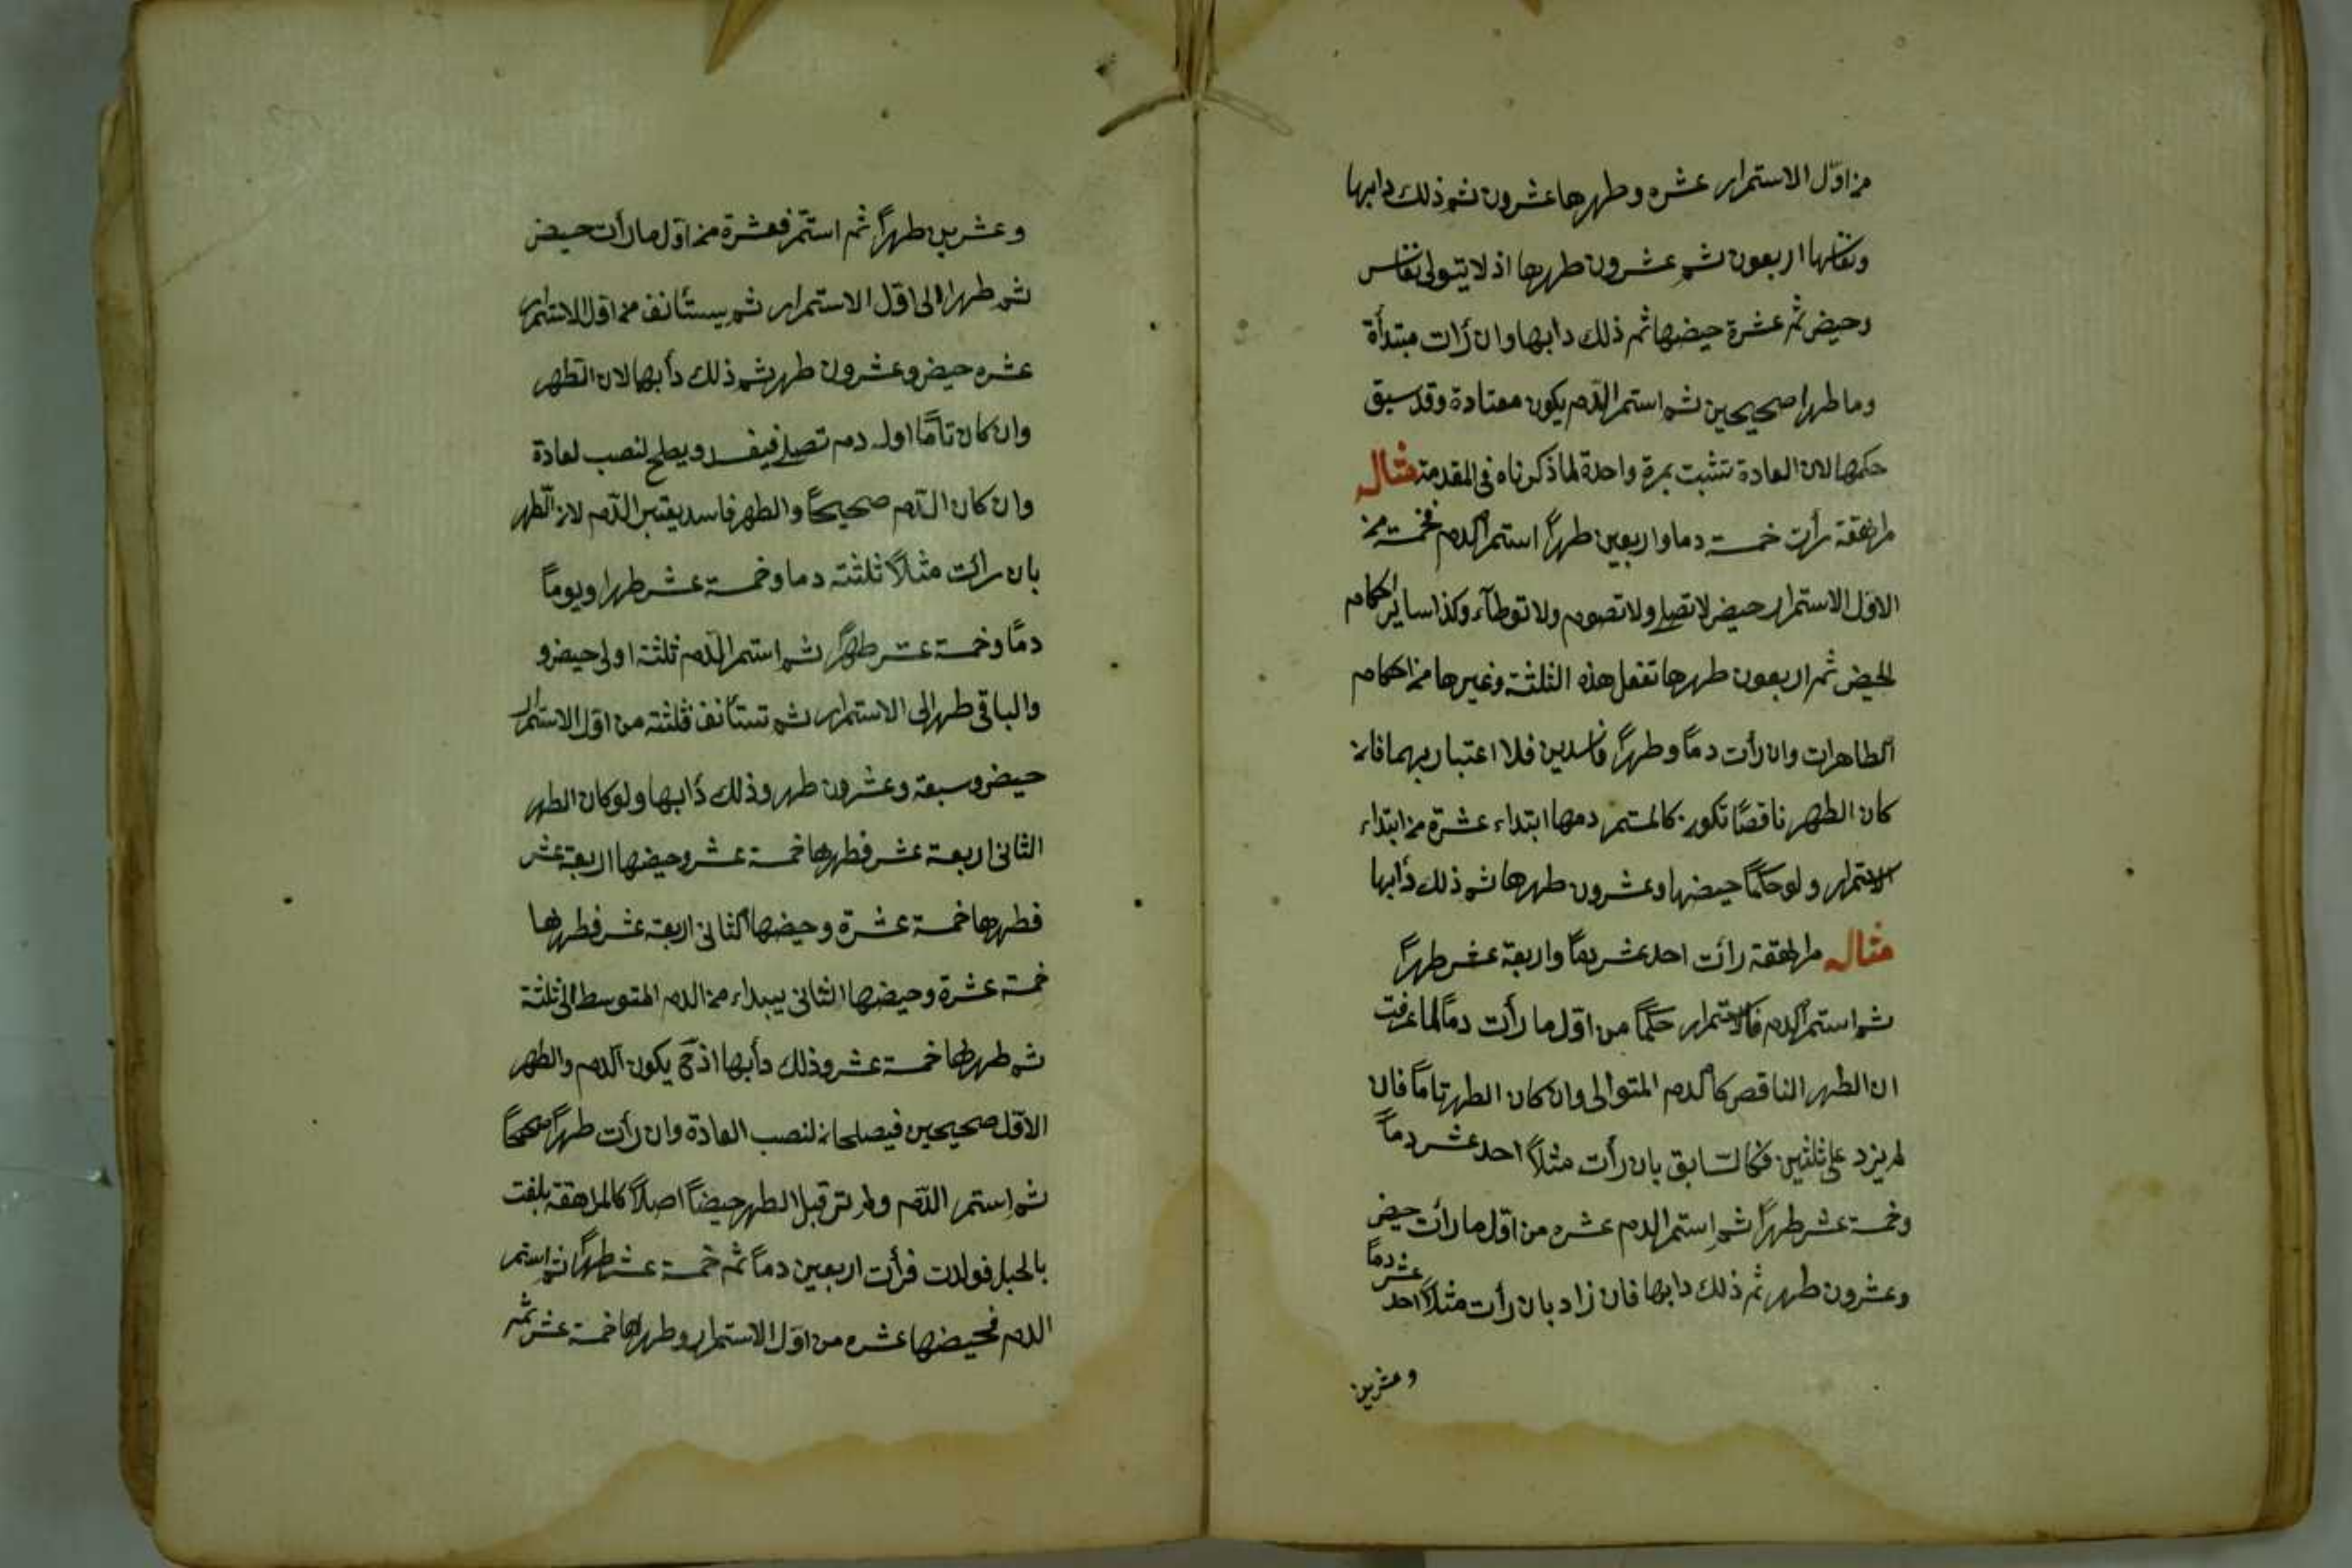 من اوّل الاستمرار عشره وطهرها عشرون ثم ذلك دابها
ونفاسها اربعون ثم عشرون طهرها اذ لا يتوالى نفاس
وحيض ثم عشرة حيضها ثم ذلك دابها وان رأت مبتدأة
وما طهرا صحيحين ثم استمر الدّم يكون معتادة وقد سبق
حكمها لان العادة تثبت بمرة واحدة لما ذكرناه فى المقدمة مثال
مراهقة رأت خمسة دما واربعين طهراً استمر الدم فخمسة من
الاوّل الاستمرار حيض لا تصلى ولا تصوم ولا توطآء وكذا ساير احكام
الحيض ثم اربعون طهرها تفعل هذه الثلثة وغيرها من احكام
الطاهرات وان رأت دمًا وطهراً فاسدين فلا اعتبار بهما فان
كان الطهر ناقصًا تكون كالمستمر دمها ابتداء عشرة من ابتداء
الاستمرار ولو حكمًا حيضها وعشرون طهرها ثم ذلك دأبها
مثال مراهقة رأت احد عشر يومًا واربعة عشر طهراً
ثم استمر الدم فالاستمرار حكمًا من اوّل ما رأت دمًا لما عرفت
ان الطهر الناقص كالدم المتوالى وان كان الطهر تامًا فان
لم يزد على ثلثين فكالسّابق بان رأت مثلاً احد عشر دماً
وخمسة عشر طهراً ثم استمر الدم عشره من اوّل ما رأت حيض
وعشرون طهر ثم ذلك دابها فان زاد بان رأت مثلاً احد عشر دماً
وعشرين
وعشرين طهراً ثم استمّر فعشرة من اوّل ما رأت حيض
ثم طهرا الى اوّل الاستمرار ثم يستأنف من اوّل الاستمرار
عشره حيض وعشرون طهر ثم ذلك دأبها لان الطهر
وان كان تامًا اوله دم تصلى فيفسد ويصلح لنصب لعادة
وان كان الدّم صحيحًا والطهر فاسد يعتبر الدّم لا الطّهر
بان رأت مثلاً ثلثة دما وخمسة عشر طهرا ويوماً
دمًا وخمسة عشر طهراً ثم استمر الدّم ثلثة اولى حيض و
والباقى طهر الى الاستمرار ثم تستأنف فثلثة من اوّل الاستمرار
حيض وسبعة وعشرون طهر وذلك دأبها ولو كان الطهر
الثانى اربعة عشر فطهرها خمسة عشر وحيضها اربعة عشر
فطهرها خمسة عشرة وحيضها الثانى اربعة عشر فطهرها
خمسة عشرة وحيضها الثانى يبداء من الدم المتوسط الى ثلثة
ثم طهرها خمسة عشر وذلك دأبها اذ ح يكون الدم والطهر
الاوّل صحيحين فيصلحان لنصب العادة وان رأت طهراً صحيحًا
ثم استمر الدّم ولم تر قبل الطهر حيضاً اصلاً كالمراهقة بلغت
بالحبل فولدت فرأت اربعين دماً ثم خمسة عشر طهراً ثم استمر
الدم فحيضها عشره من اوّل الاستمرار وطهرها خمسة عشر ثم